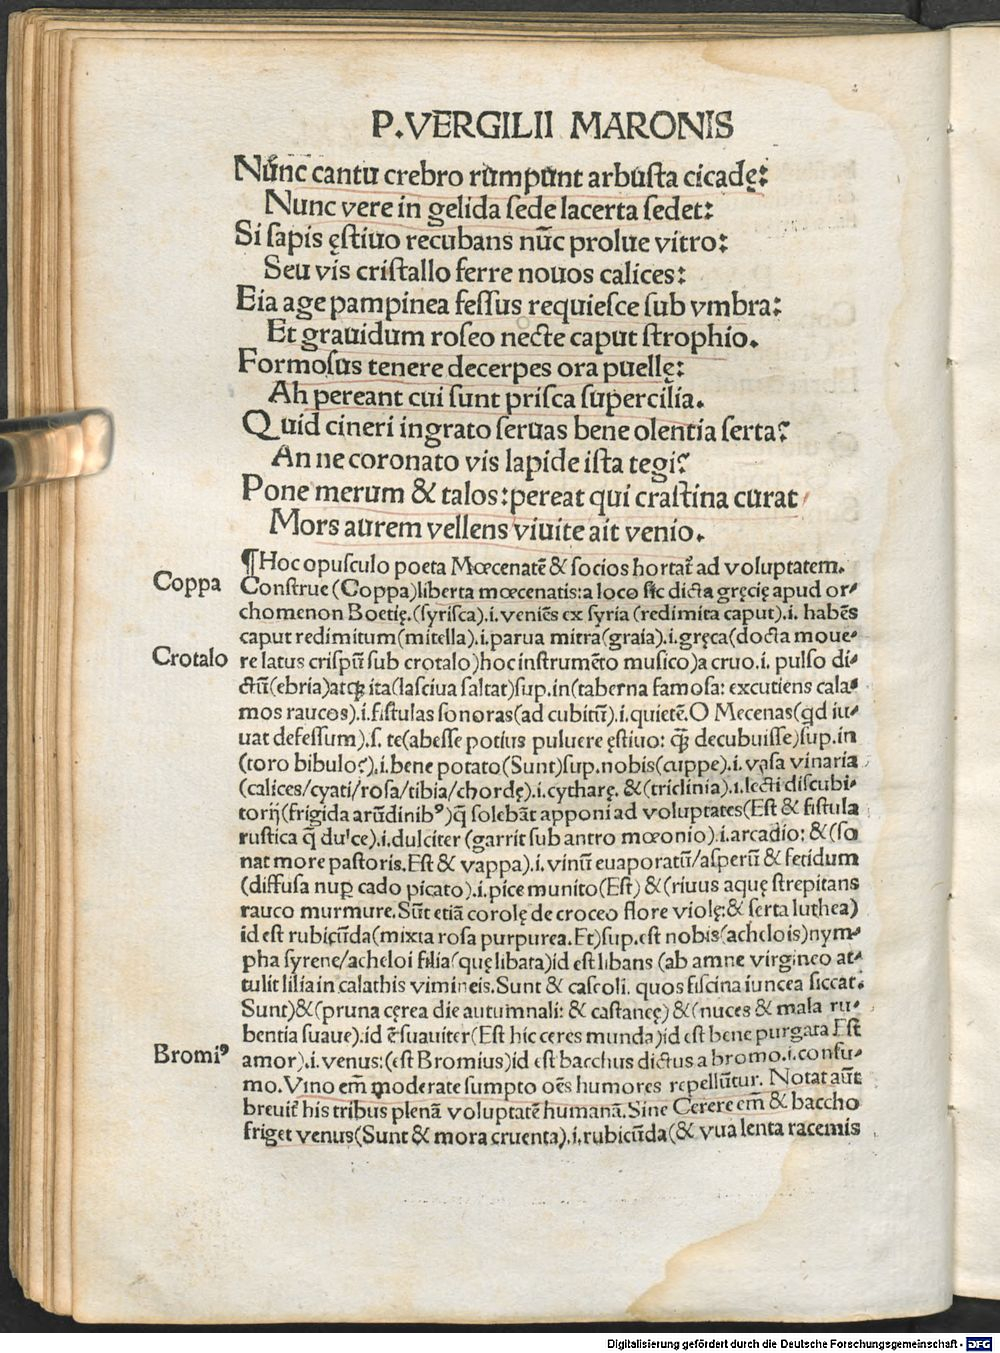 P. VERGILII MARONIS
Nūnc cantu crebro rumpunt arbusta cicadę:
Nunc vere in gelida sede lacerta sedet:
Si sapis ęstiuo recubans nūc prolue vitro:
Seu vis cristallo ferre nouos calices:
Eia age pampinea fessus requiesce sub vmbra:
Et grauidum roseo necte caput strophio.
Formosus tenere decerpes ora puellę:
Ah pereant cui sunt prisca supercilia.
Quid cineri ingrato seruas bene olentia serta?
An ne coronato vis lapide ista tegi?
Pone merum & talos: pereat qui crastina curat
Mors aurem vellens viuite ait venio.
¶ Hoc opusculo poeta Mœcenatē & socios hortat᷑ ad voluptatem.
Coppa Construe (Coppa) liberta mœcenatis: a loco sic dicta gręcię apud or-
chomenon Boetię. (syrisca) .i. veniēs ex syria (redimita caput) .i. habēs
caput redimitum (mitella) .i. parua mitra (graia) .i. gręca (docta moue-
Crotalo re latus crispū sub crotalo) hoc instrumēto musico) a cruo .i. pulso di-
ctū (ebria) atqꝫ ita (lasciua saltat) sup. in (taberna famosa: excutiens cala-
mos raucos) .i. fistulas sonoras (ad cubitū) .i. quietē. O Mecenas (qd iu-
uat defessum) .s. te (abesse potius puluere ęstiuo: qꝫ̄ decubuisse) sup. in
(toro bibulo?) .i. bene potato (Sunt) sup. nobis (cuppe) .i. vasa vinaria
(calices/cyati/rosa/tibia/chordę) .i. cytharę. & (triclinia) .i. lecti discubi-
torij (frigida arūdinibꝰ) q̄ solebāt apponi ad voluptates (Est & fistula
rustica q̄ dulce) .i. dulciter (garrit sub antro mœonio) .i. arcadio: & (so
nat more pastoris. Est & vappa) .i. vinū euaporatū/asperū & fetidum
(diffusa nuꝑ cado picato) .i. pice munito (Est) & (riuus aquę strepitans
rauco murmure. Sūt etiā corolę de croceo flore violę: & serta luthea)
id est rubicūda (mixta rosa purpurea. Et) sup. est nobis (achelois) nym-
pha syrene/acheloi filia (quę libata) id est libans (ab amne virgineo at-
tulit lilia in calathis vimineis. Sunt & caseoli, quos fiscina iuncea siccat.
Sunt) & (pruna cęrea die autumnali: & castaneę) & (nuces & mala ru-
bentia suaue) .id ē suauiter (Est hic ceres munda) id est bene purgata Est
Bromiꝰ amor) .i. venus: (est Bromius) id est bacchus dictus a bromo .i. consu-
mo. Vino em̄ moderate sumpto oēs humores repellūtur. Notat aūt
breuit᷑ his tribus plenā voluptatē humanā. Sine Cerere em̄ & baccho
friget venus (Sunt & mora cruenta) .i. rubicūda (& vua lenta racemis
Digitalisierung gefördert durch die Deutsche Forschungsgemeinschaft - DFG